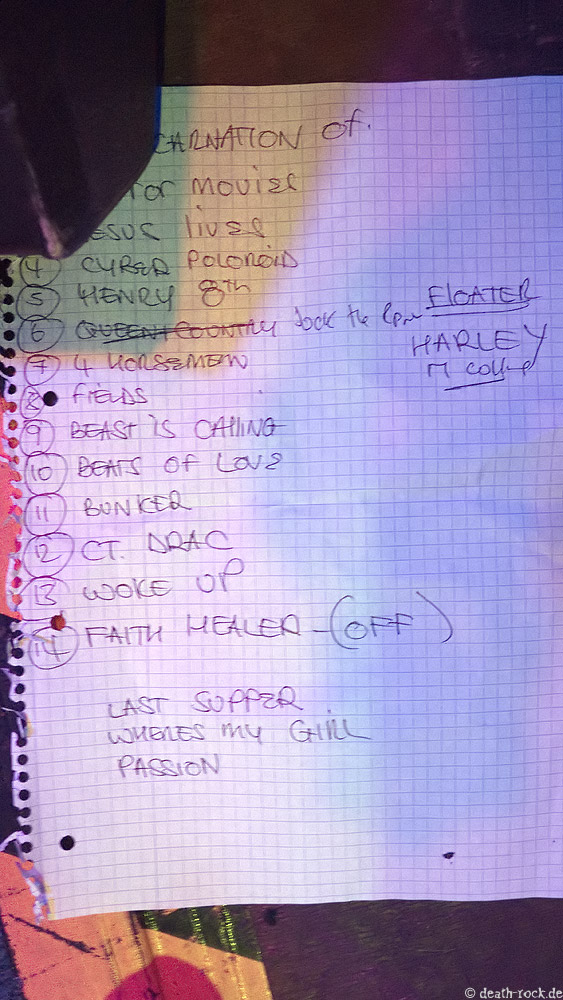 CARNATION of.
or movies
ESUS lives
④ CYBER POLOROID
⑤ HENRY 8TH
⑥ QUEEN COUNTRY Jack the FLOATER
HARLEY
⑦ 4 HORSEMEN
⑧ FIELDS
⑨ BEAST IS CALLING
⑩ BEATS OF LOVE
⑪ BUNKER
⑫ CT. DRAC
⑬ WOKE UP
⑭ FAITH HEALER - (OFF)
LAST SUPPER
WHERES MY GIRL
PASSION
© death-rock.de